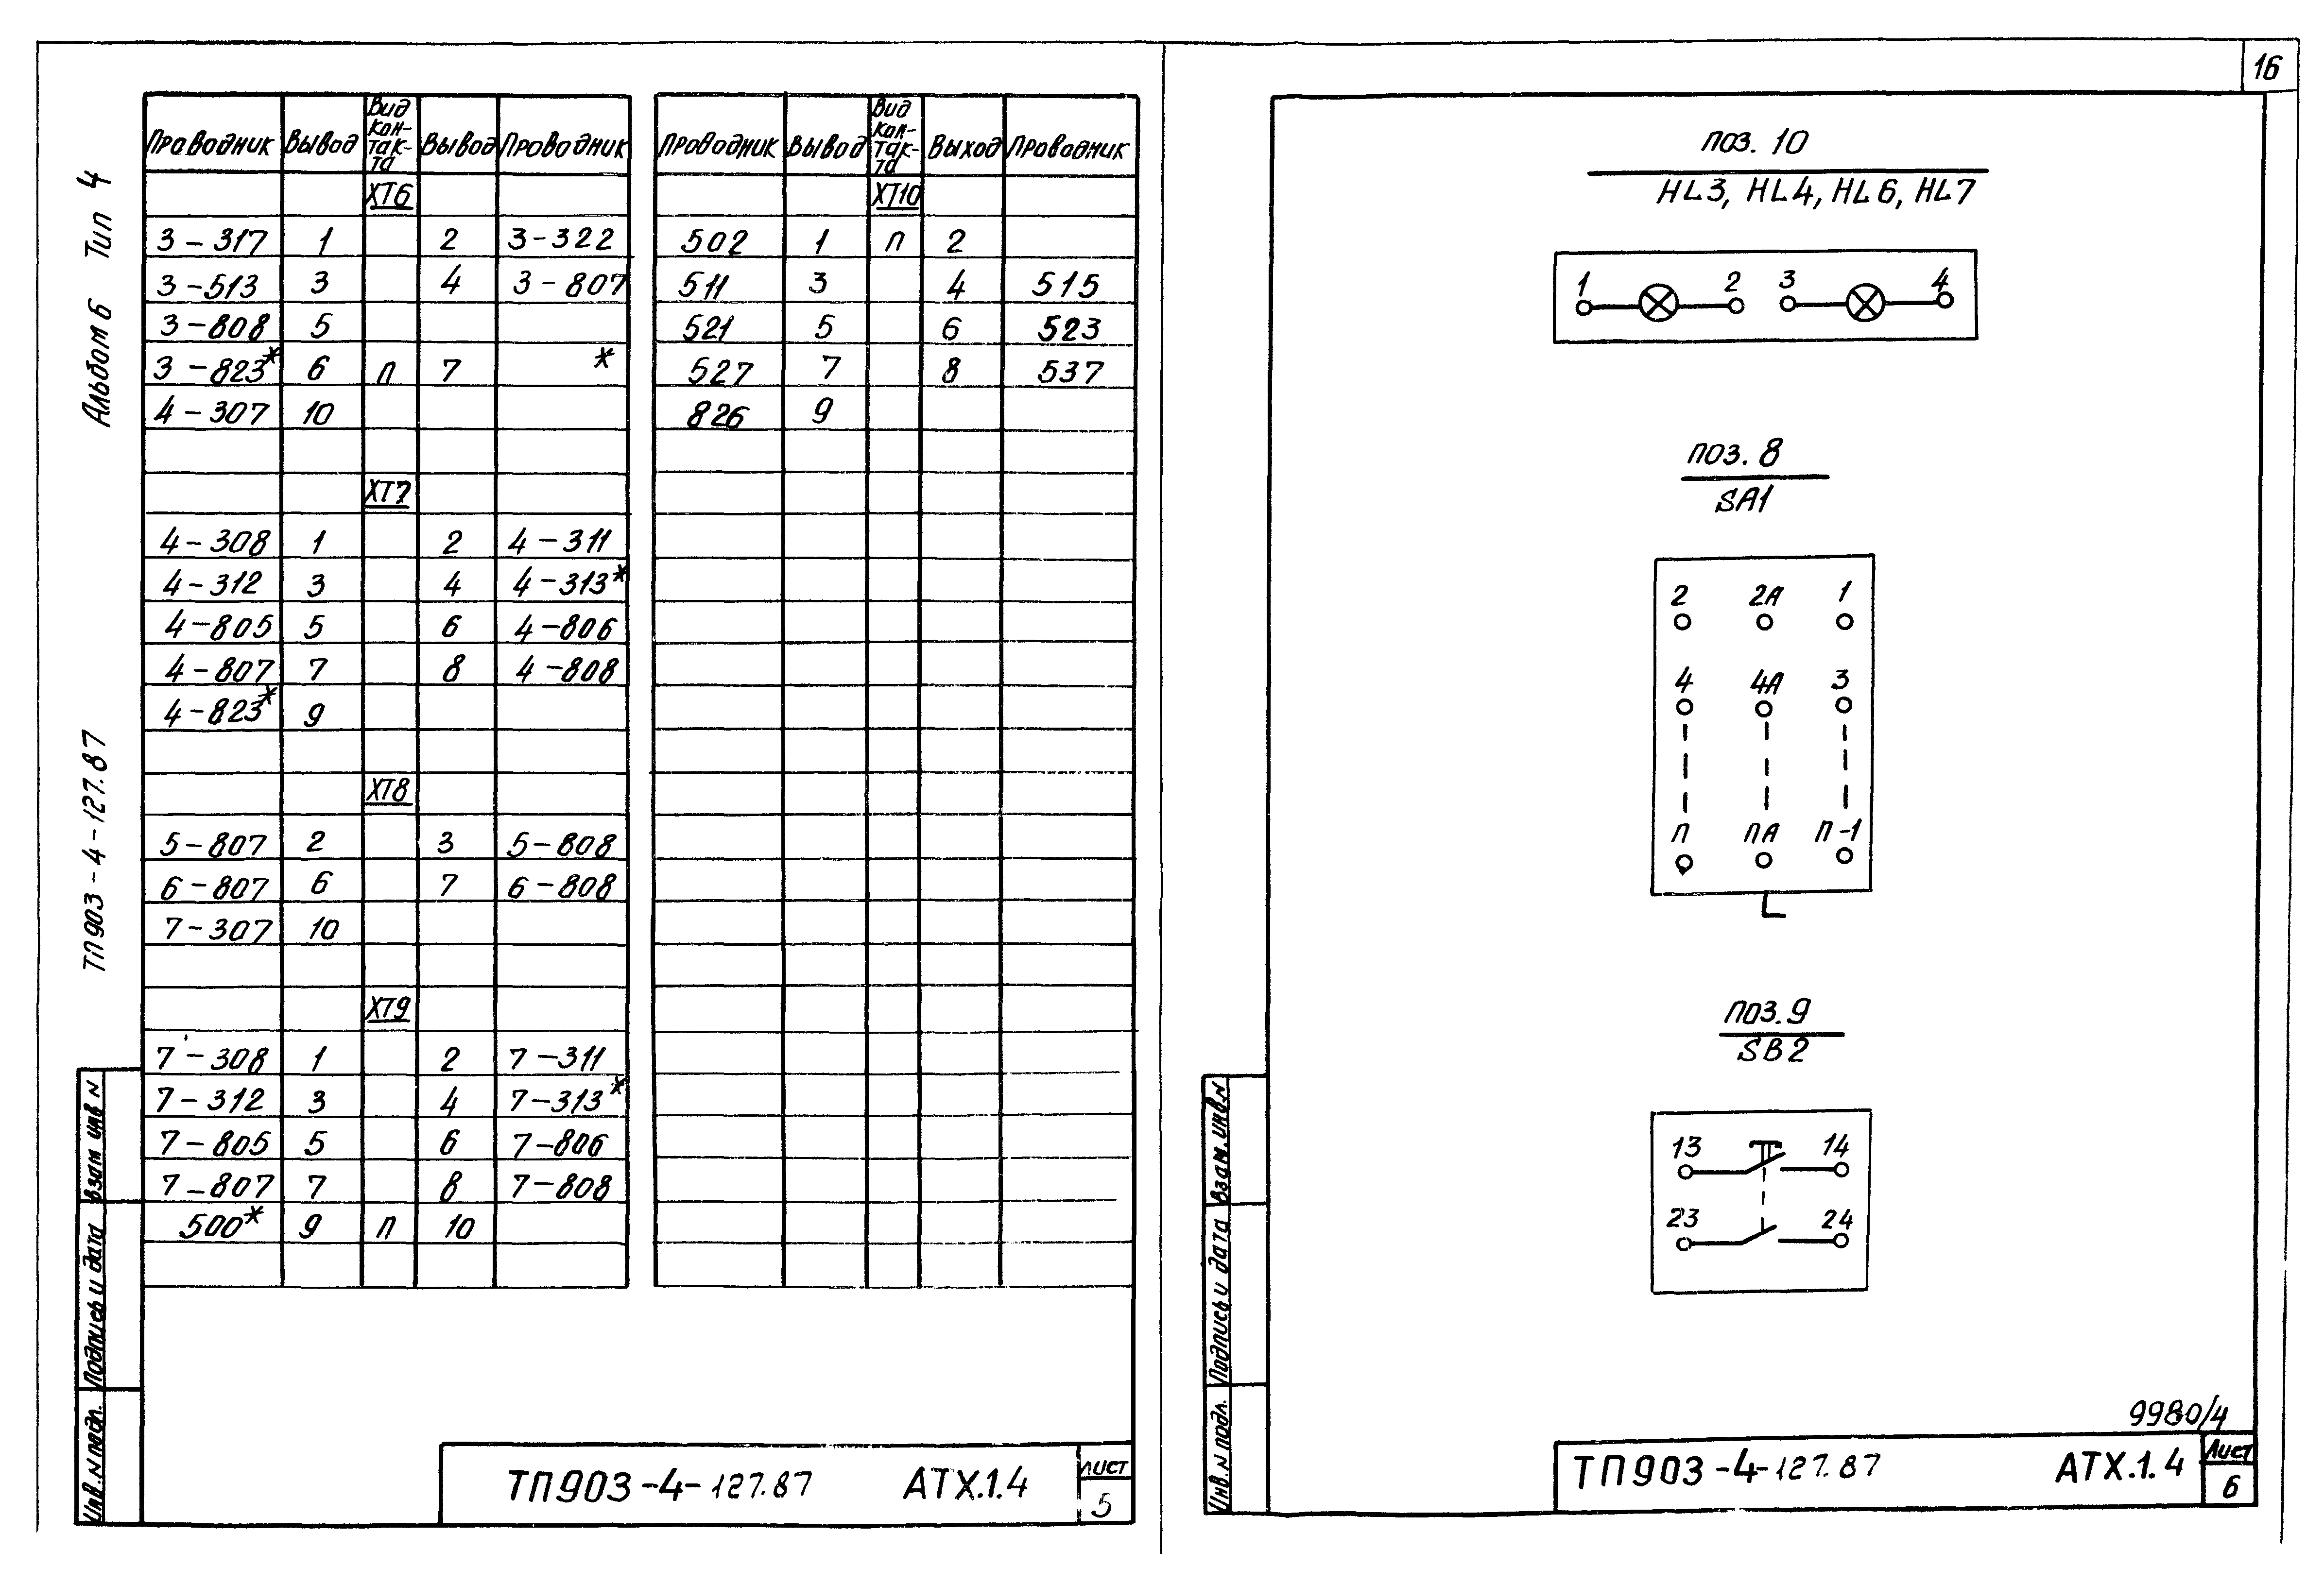 16
Альбом 6 Тип 4
ТП903-4-127.87
Проводник Вывод Вид кон-так-та Вывод Проводник
ХТ6
3-317 1 2 3-322
3-513 3 4 3-807
3-808 5
3-823* 6 П 7 *
4-307 10
ХТ7
4-308 1 2 4-311
4-312 3 4 4-313*
4-805 5 6 4-806
4-807 7 8 4-808
4-823* 9
ХТ8
5-807 2 3 5-808
6-807 6 7 6-808
7-307 10
ХТ9
7-308 1 2 7-311
7-312 3 4 7-313*
7-805 5 6 7-806
7-807 7 8 7-808
500* 9 П 10
Проводник Вывод Вид кон-так-та Выход Проводник
ХТ10
502 1 П 2
511 3 4 515
521 5 6 523
527 7 8 537
826 9
Взам инв N
Подпись и дата
Инв. N подл.
ТП903-4-127.87 АТХ.1.4
Лист
5
поз. 10
HL3, HL4, HL6, HL7
1 2 3 4
поз. 8
SA1
2 2А 1
4 4А 3
П ПА П-1
поз. 9
SB2
13 14
23 24
Взам. инв. N
Подпись и дата
Инв. N подл.
9980/4
ТП903-4-127.87 АТХ.1.4
Лист
6